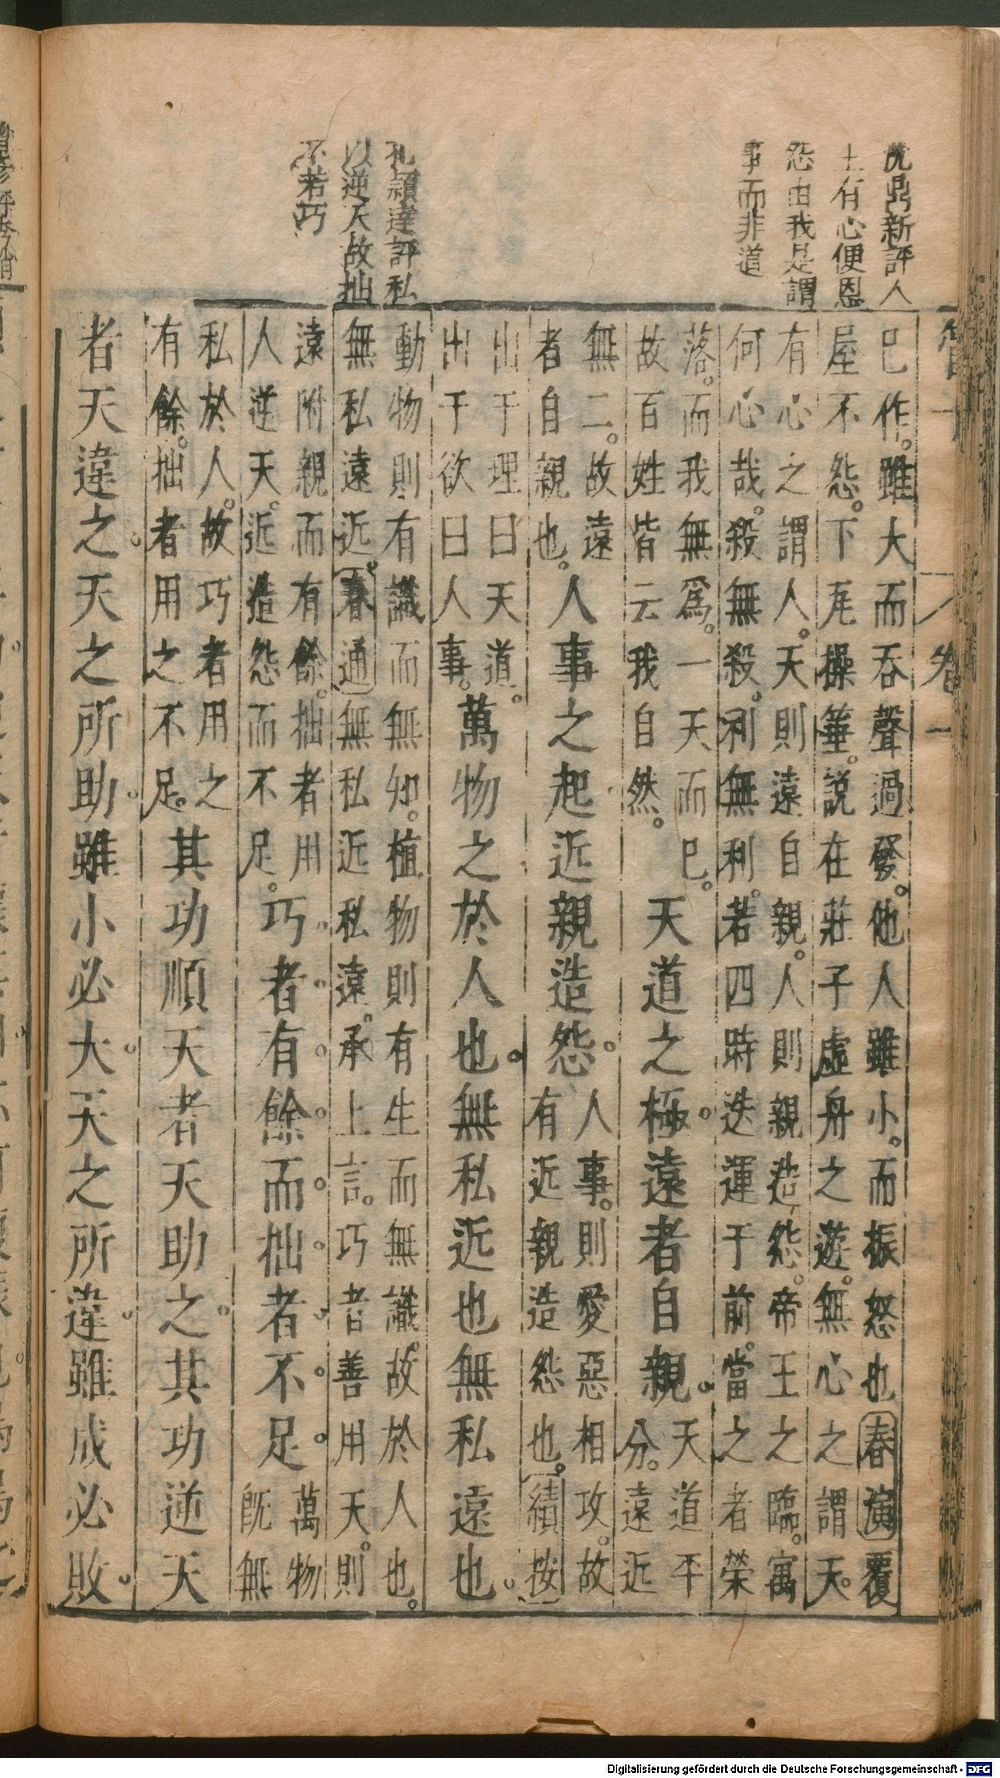 沈鼎新評人
主有心便恩
怨由我是謂
事而非道
孔穎達評私
以逆天故拙
不若巧
卷一
已作。雖大而吞聲過發。他人雖小。而振怒也春演覆
屋不怨。下尾操箠。說在莊子虛舟之遊。無心之謂天。
有心之謂人。天則遠自親。人則親造怨。帝王之臨。寓
何心哉。殺無殺。利無利。若四時迭運于前。當之者榮
落。而我無爲。一天而已。
故百姓皆云我自然。
天道之極。遠者自親。
天道平
分。遠近
無二。故遠
者自親也。
人事之起近親造怨。
人事。則愛惡相攻。故
有近親造怨也。績按
出于理曰天道。
出于欲曰人事。
萬物之於人也。無私近也無私遠也。
動物則有識而無知。植物則有生而無識。故於人也。
無私遠近。春通無私近私遠。承上言。巧者善用天。則
遠附親而有餘。拙者用
人逆天。近造怨而不足。
巧者有餘而拙者不足。
萬物
既無
私於人。故巧者用之
有餘。拙者用之不足。
其功順天者天助之。其功逆天
者天違之。天之所助。雖小必大。天之所違。雖成必敗。
Digitalisierung gefördert durch die Deutsche Forschungsgemeinschaft - DFG